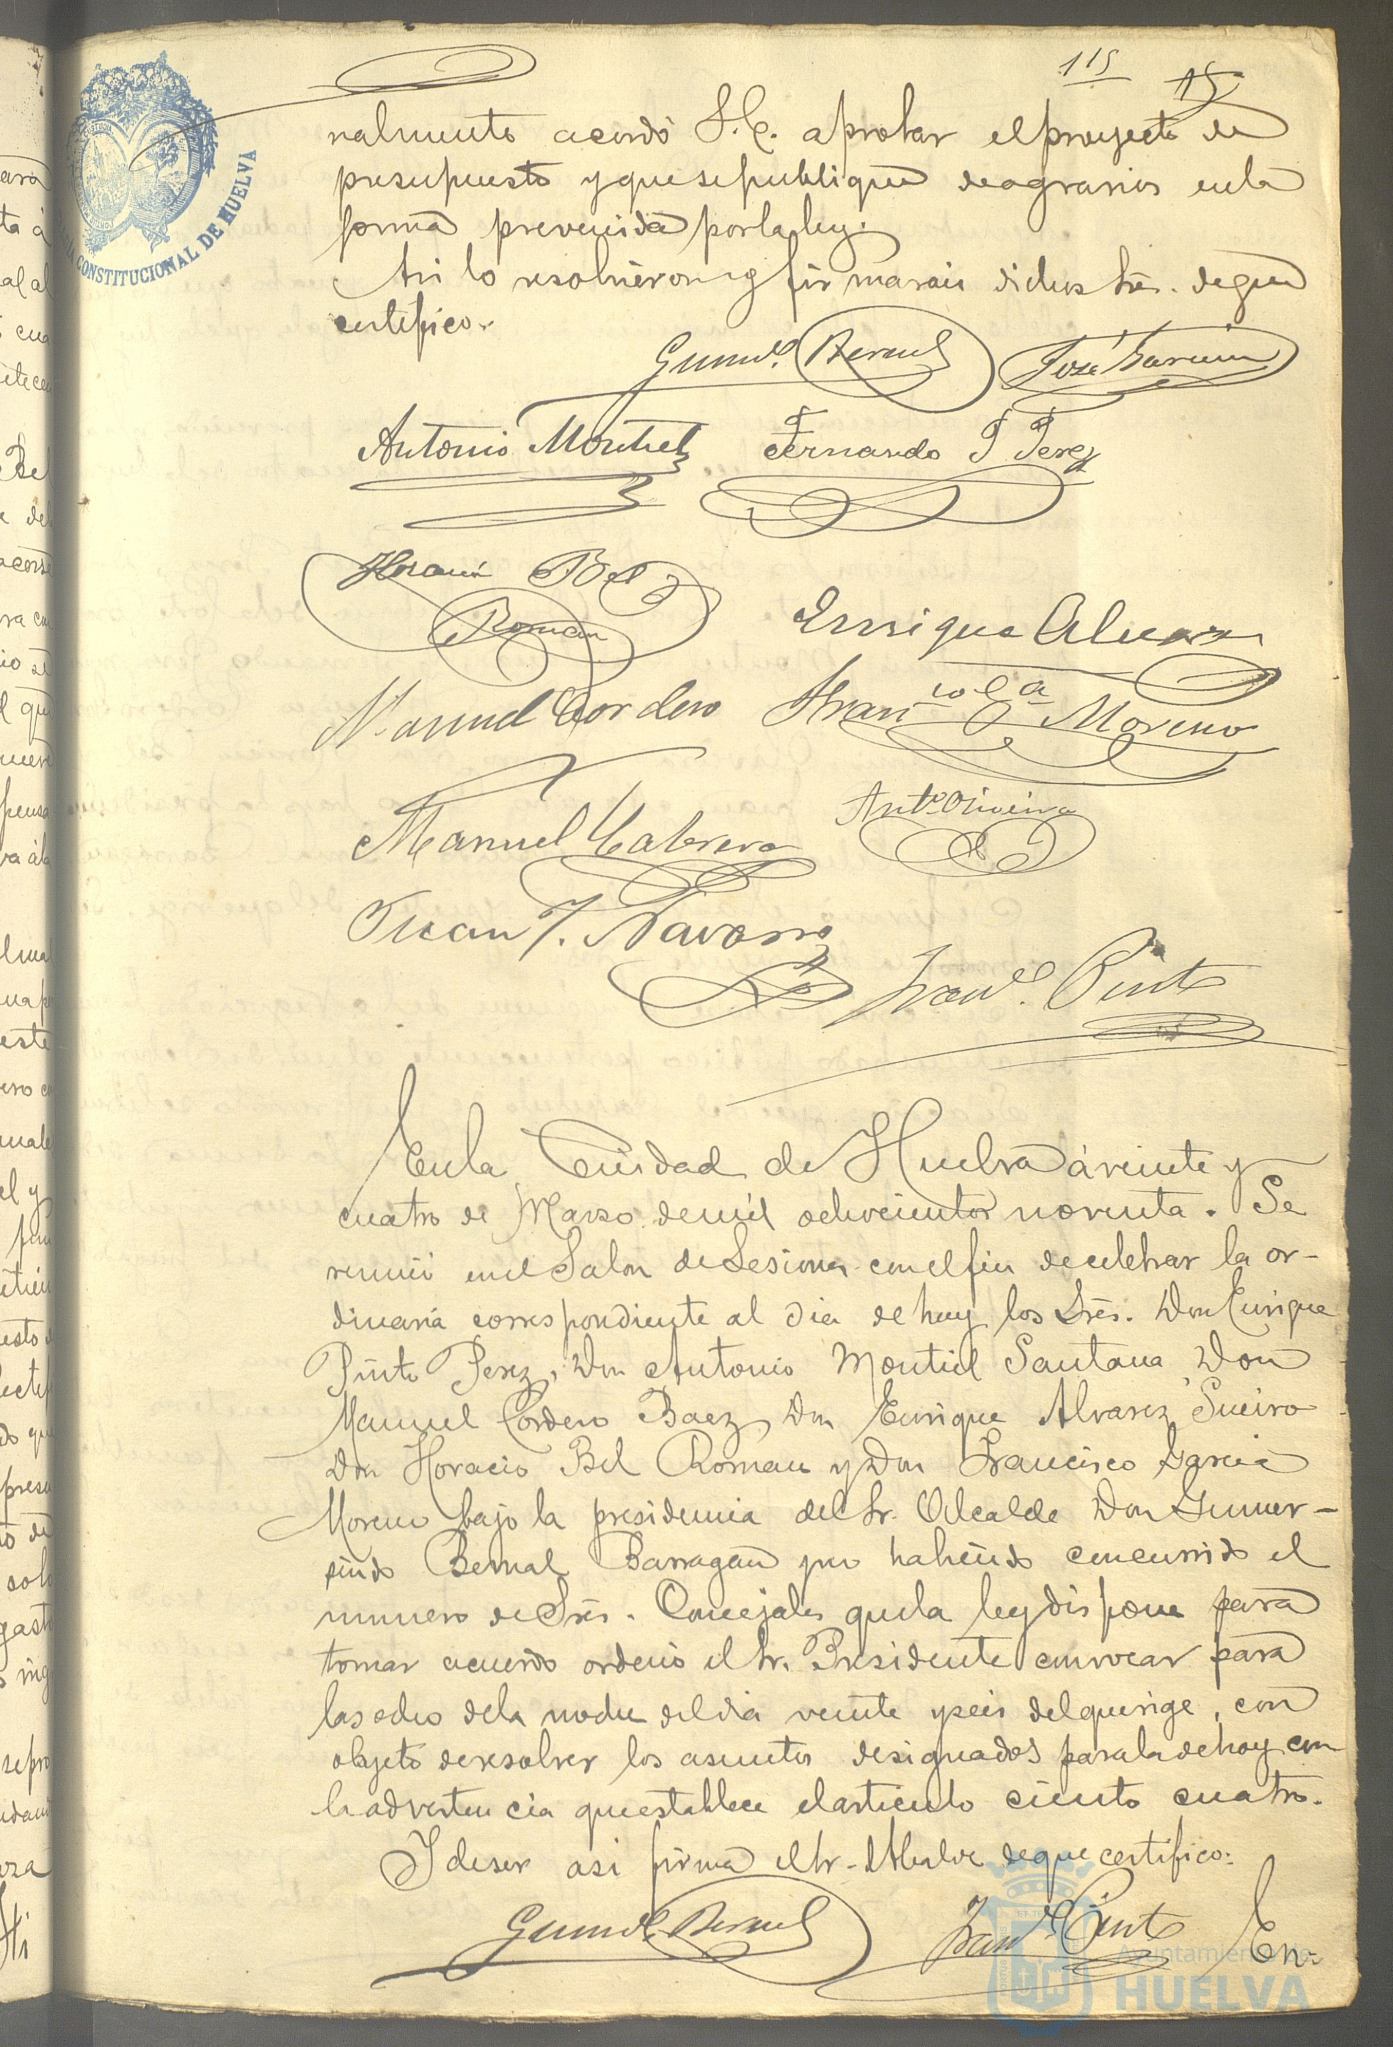 115 15
nalmente acordó S.E. aprobar el proyecto de
presupuesto y que se publique de agravios en la
forma prevenida por la ley.
Asi lo resolvieron y firmaran dichos Sres. de que
certifico.
Gumdo. Bernal José Garcia
Antonio Montiel Fernando P Perez
Horacio Bel
Roman
Enrique Alvarez
Manuel Cordero Francoca Moreno
Manuel Cabrera Anto. Oliveira
Juan J. Navarro
Franco. Pinto
En la Ciudad de Huelva á veinte y
cuatro de Marzo de mil ochocientos noventa. Se
reunió en el Salon de Sesiones con el fin de celebrar la or-
dinaria correspondiente al dia de hoy los Sres. Don Enrique
Pinto Perez, Don Antonio Montiel Santana Don
Manuel Cordero Baez, Don Enrique Alvarez Sueiro
Don Horacio Bel Roman y Don Francisco Garcia
Moreno bajo la presidencia del Sr. Alcalde Don Gumer-
sindo Bernal Barragan y no habiendo concurrido el
numero de Sres. Concejales que la ley dispone para
tomar acuerdo ordenó el Sr. Presidente convocar para
las ocho de la noche del dia veinte y seis del que rige, con
objeto de resolver los asuntos designados para la de hoy con
la advertencia que establece el articulo ciento cuatro.
Y de ser asi firma el Sr. Alcalde de que certifico.
Gumdo. Bernal Franco. Pinto En
CONSTITUCIONAL DE HUELVA
Ayuntamiento de
HUELVA